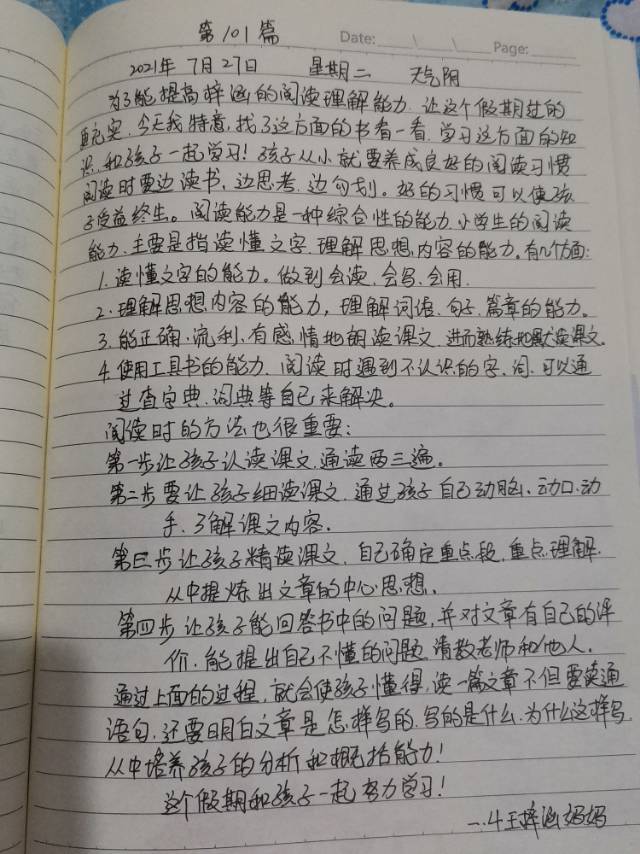 第101篇
Date:
Page:
2021年 7月27日 星期二 天气阴
为了能提高梓涵的阅读理解能力.让这个假期过的
更充实.今天我特意,找了这方面的书看一看.学习这方面的知
识.和孩子一起学习!孩子从小就要养成良好的阅读习惯
阅读时要边读书.边思考.边勾划。好的习惯可以使孩
子受益终生。阅读能力是一种综合性的能力.小学生的阅读
能力.主要是指读懂文字.理解思想内容的能力。有几个方面:
1.读懂文字的能力。做到会读.会写.会用.
2.理解思想内容的能力,理解词语.句子.篇章的能力。
3.能正确.流利.有感情地朗读课文.进而熟练地默读课文。
4.使用工具书的能力.阅读时遇到不认识的字、词.可以通
过查字典.词典等自己来解决。
阅读时的方法也很重要:
第一步让孩子认读课文.通读两三遍。
第二步要让孩子细读课文.通过孩子自己动脑、动口、动
手.了解课文内容.
第三步让孩子精读课文.自己确定重点段.重点理解.
从中提炼出文章的中心思想.
第四步让孩子能回答书中的问题,并对文章有自己的评
价.能提出自己不懂的问题.请教老师和他人.
通过上面的过程.就会使孩子懂得,读一篇文章不但要读通
语句.还要明白文章是怎样写的.写的是什么.为什么这样写
从中培养孩子的分析和概括能力!
这个假期和孩子一起努力学习!
一.4王梓涵妈妈